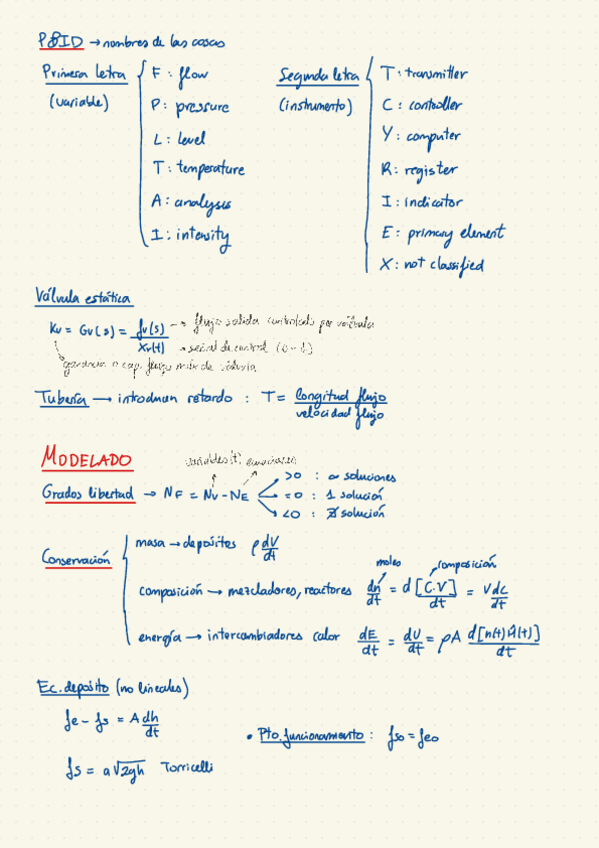 P&ID → nombres de las cosas
Primera letra (variable)
F: flow
P: pressure
L: level
T: temperature
A: analysis
I: intensity
Segunda letra (instrumento)
T: transmitter
C: controller
Y: computer
R: register
I: indicator
E: primary element
X: not classified
Válvula estática
Kv = Gv(s) = fv(s) / Xv(t)
→ flujo salida controlado por válvula
→ señal de control (0-1)
ganancia o cap. flujo máx de válvula
Tubería → introducen retardo: T = longitud flujo / velocidad flujo
MODELADO
variables (t) ecuaciones
Grados libertad → NF = NV - NE
>0 : ∞ soluciones
=0 : 1 solución
<0 : ∄ solución
Conservación
masa → depósitos ρ dV/dt
moles composición
composición → mezcladores, reactores dn/dt = d[C·V]/dt = V dc/dt
energía → intercambiadores calor dE/dt = dU/dt = ρA d[h(t)û(t)]/dt
Ec. depósito (no lineales)
fe - fs = A dh/dt
• Pto. funcionamiento: fso = feo
fs = a√2gh Torricelli